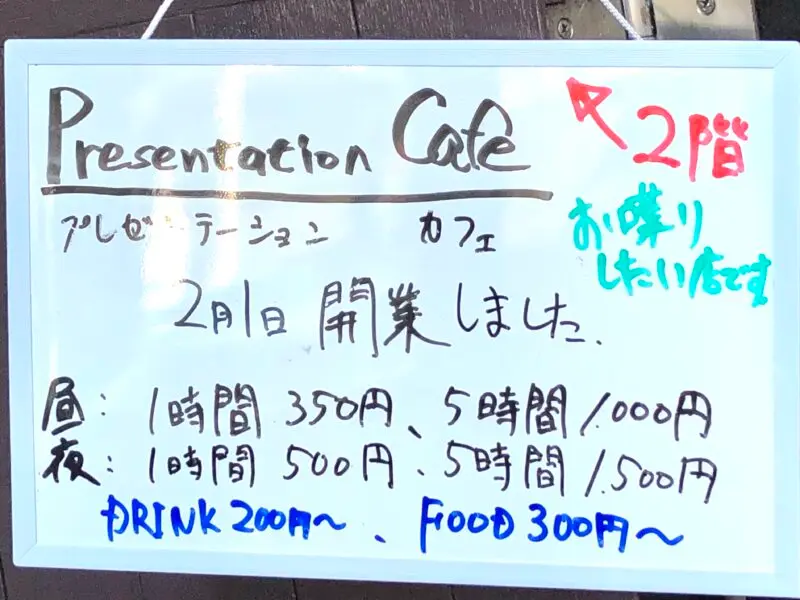 Presentation Cafe
プレゼンテーション カフェ
2階
お喋り
したい店です
2月1日 開業しました.
昼: 1時間 350円、5時間 1.000円
夜: 1時間 500円、5時間 1.500円
DRINK 200円～、FOOD 300円～